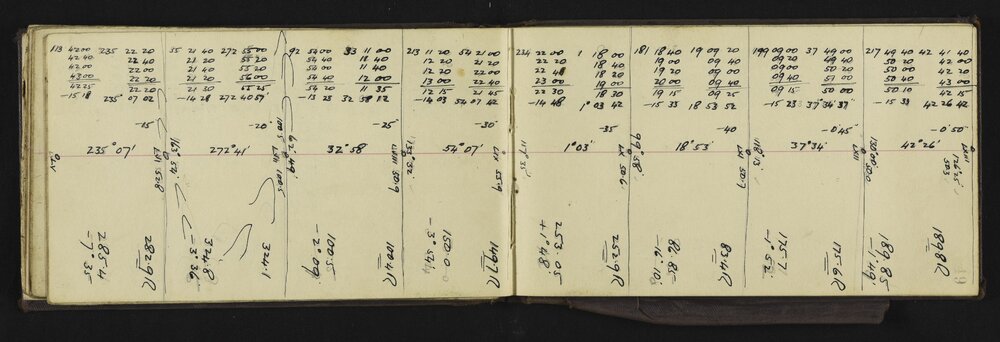 113 42 00 235 22 20
42 40 22 40
42 00 22 00
43 00 22 20
42 25 22 20
-15 18 235 07 02
-15
235° 07'
55 21 40 272 55 00
21 20 55 20
21 20 55 00
21 20 56 00
21 30 55 25
-14 28 272 40 57
-20
272° 41'
92 54 00 33 11 00
54 40 18 40
54 00 11 40
54 40 12 00
54 20 11 35
-13 23 32 58 12
-25
32° 58'
213 11 20 54 21 00
12 20 21 20
12 20 22 00
13 00 22 40
12 15 21 45
-14 03 54 07 42
-30
54° 07'
234 22 00 1 18 00
22 20 18 40
22 40 18 20
23 00 19 00
22 30 18 30
-14 48 1° 03 42
-35
1° 03'
181 18 40 19 09 20
19 00 09 00
19 20 09 00
20 00 09 40
19 15 09 25
-15 33 18 53 52
-40
18° 53'
199 09 00 37 49 00
09 20 49 40
09 00 50 20
09 40 51 00
09 15 50 00
-15 23 37° 34' 37"
-0'45"
37° 34'
217 49 40 42 41 40
50 20 42 00
50 00 42 20
50 40 43 00
50 10 42 15
-15 33 42 26 42
-0'50"
42° 26'
LXII 52.8
163° 54'
LXII 100.5
62° 49'
LXIII 50.9
153° 52'
LXI 55.9
117° 35'
LX 50.6
99° 58'
LXI 50.7
118° 13'
LXII
LXII 50.3
126° 25'
285.4
-7° 35'
282.9 R
324.8
-3° 36'
324.1
100.5
-2° 09'
100.4 R
150.0
149.7 R
253.05
+1° 48'
252.9 R
86.85
-16° 10'
83.4 R
175.7
-1° 52'
175.6 R
189.85
1° 49'
189.8 R
19